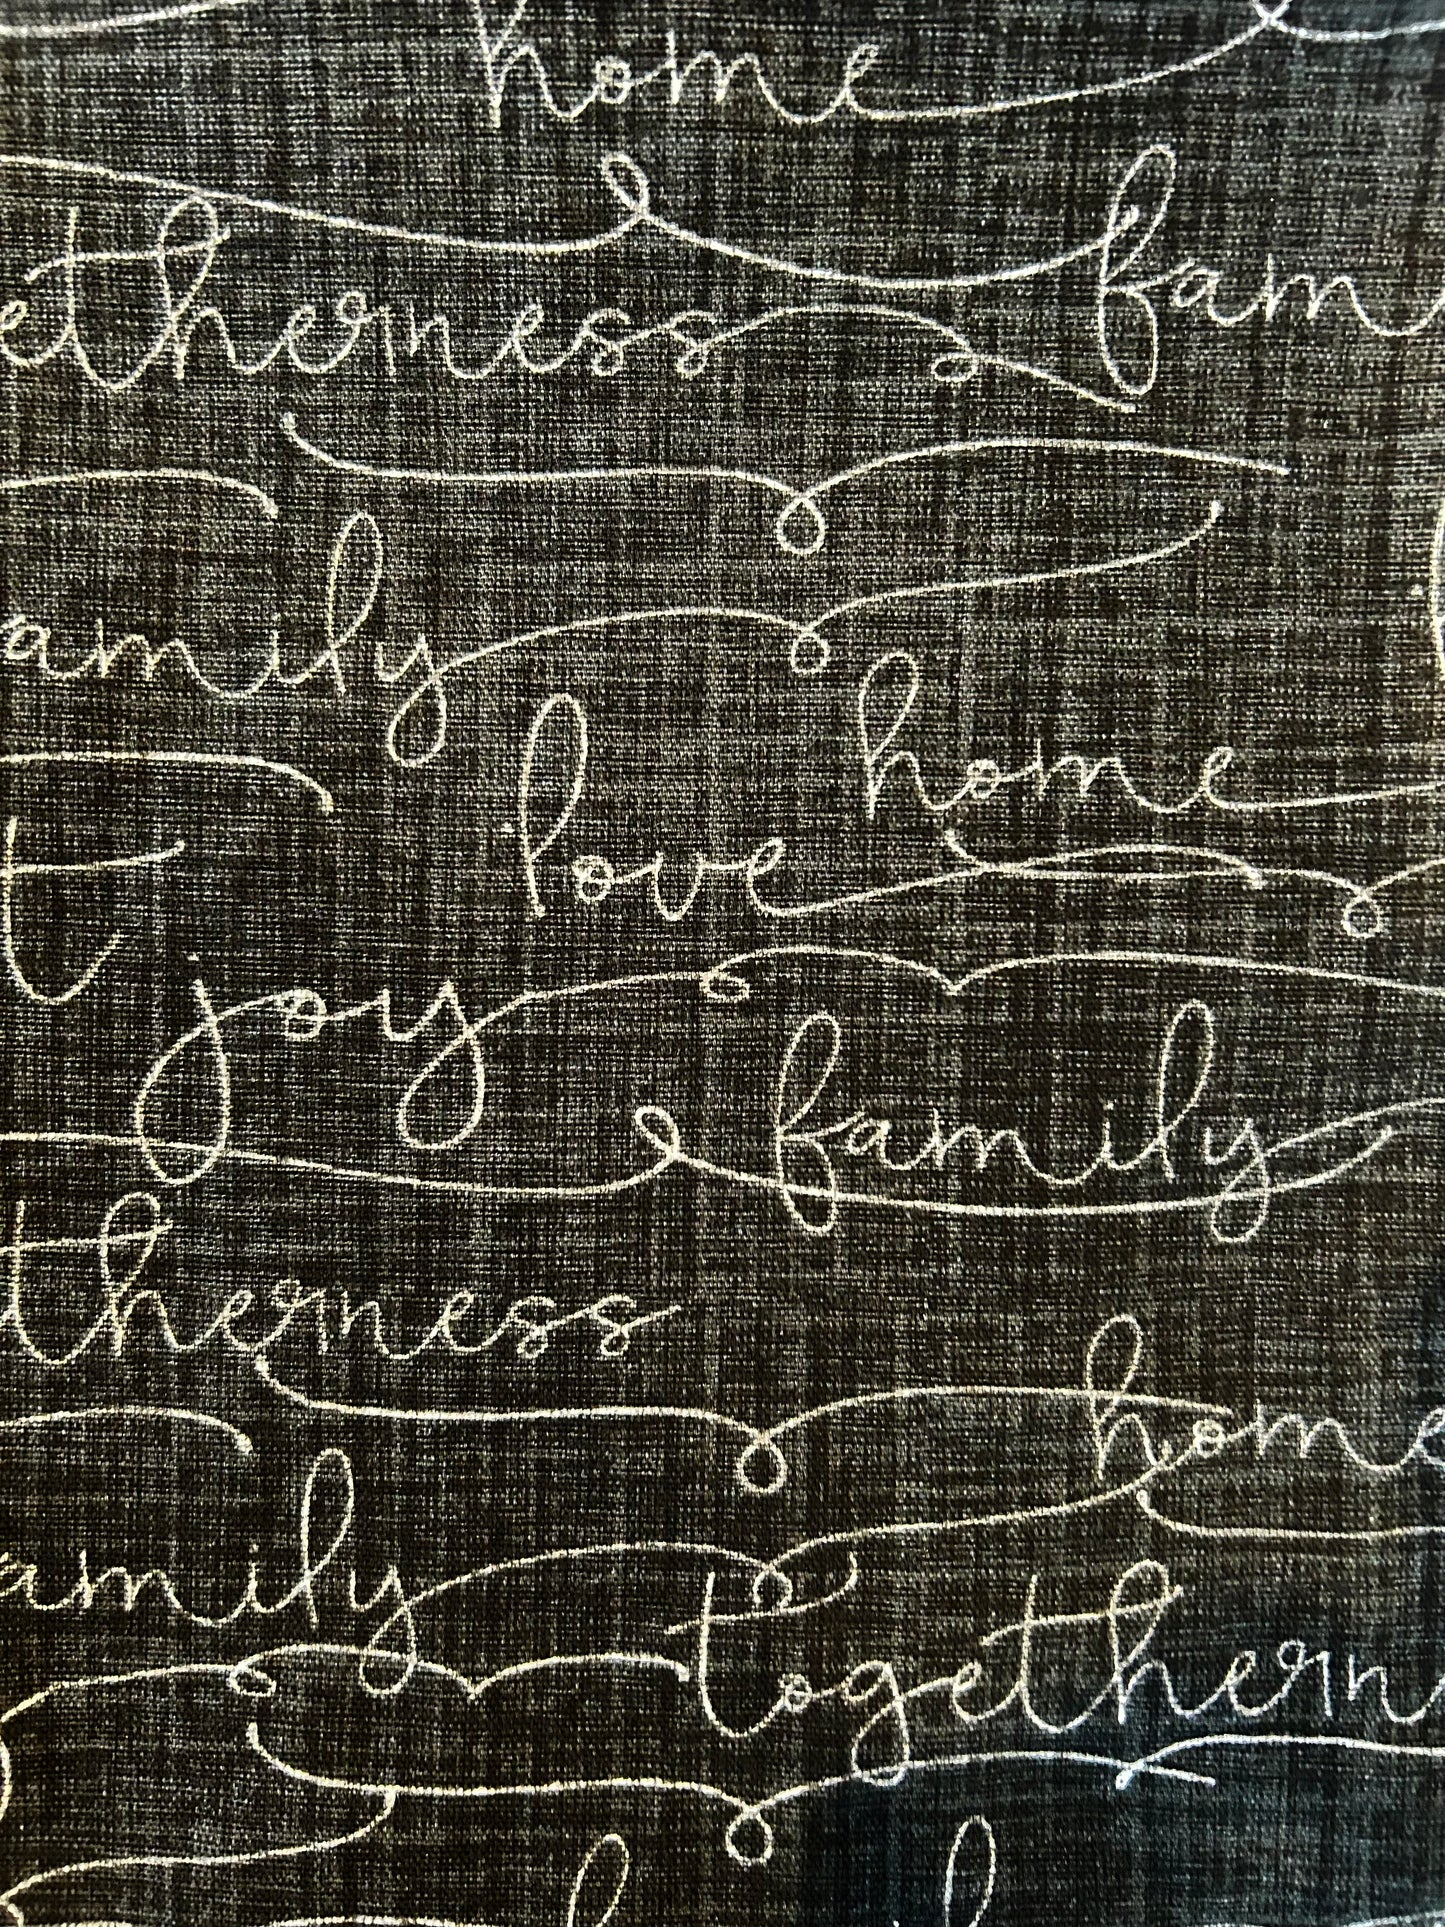 home
etherness fam
amily
love home
t
joy
family
therness
home
amily
togethern